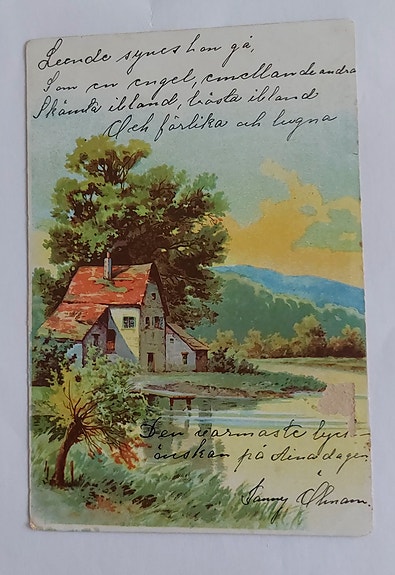 Leende synes hon gå,
Som en engel, emellan de andra
Skämta ibland, trösta ibland
Och förlika och lugna
Den varmaste lyc-
önskan på dina dagar.
Fanny Öhman.